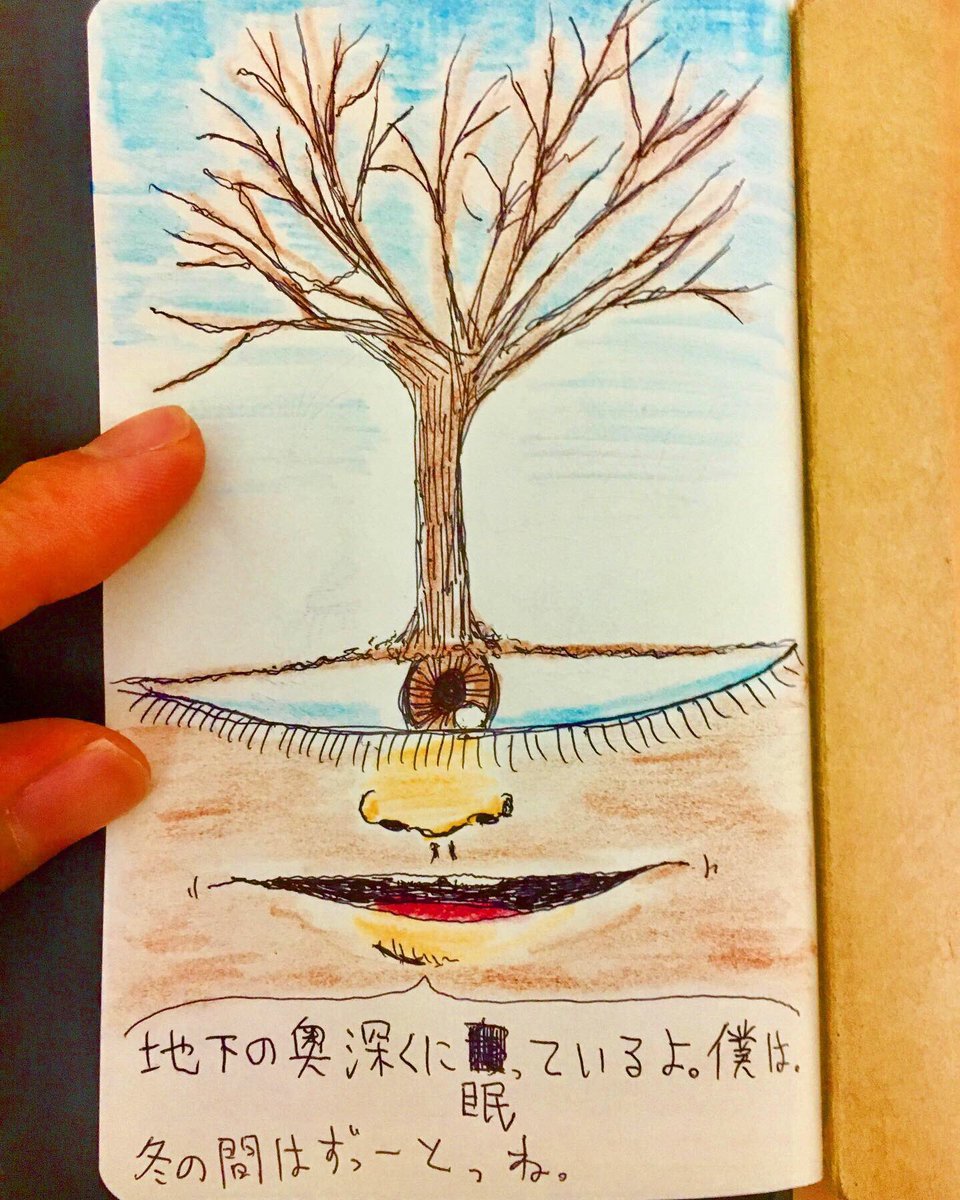 地下の奥深くに眠っているよ。僕は.
冬の間はずっーとっね。